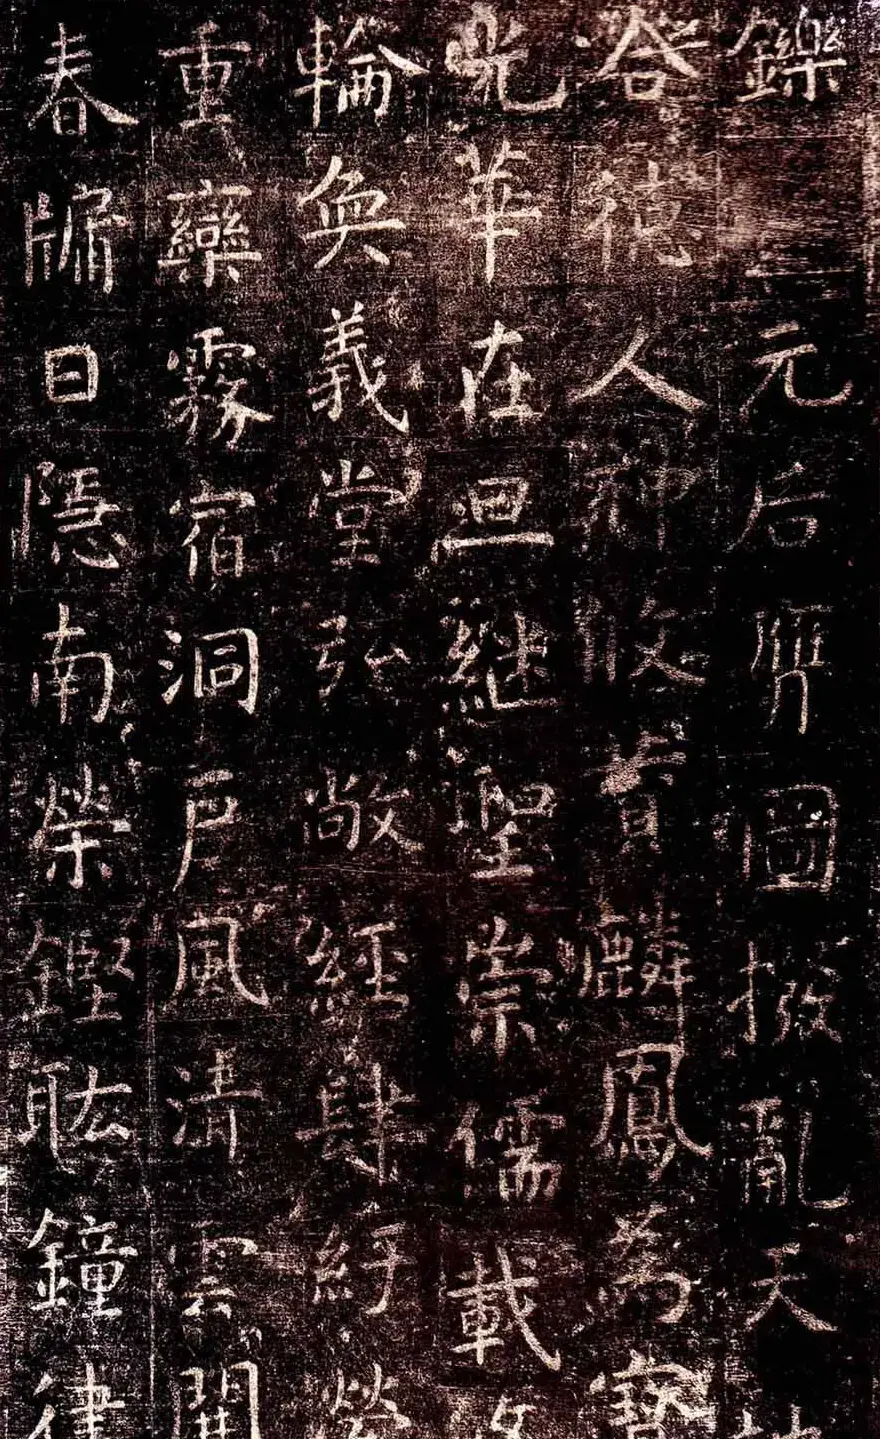 鑠元后膺圖撥亂天
合德人神攸贊麟鳳為寶
光華在旦繼聖崇儒載
輪奐義堂弘敞經肆紆縈
重欒霧宿洞戶風清雲開
春牖日隱南榮鏗耾鐘律